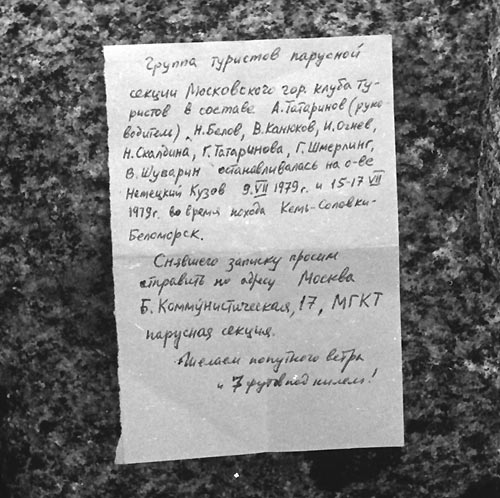 Группа туристов парусной
секции Московского гор. клуба ту-
ристов в составе А.Татаринов (руко-
водитель), Н.Белов, В.Канюков, И.Огнев,
Н.Скалдина, Г.Татаринова, Г.Шмерлинг,
В.Шуварин останавливалась на о-ве
Немецкий Кузов 9.VII 1979г. и 15-17 VII
1979г. во время похода Кемь-Соловки-
Беломорск.
Снявшего записку просим
отправить по адресу Москва
Б.Коммунистическая, 17, МГКТ
парусная секция.
Желаем попутного ветра
и 7 футов под килем!